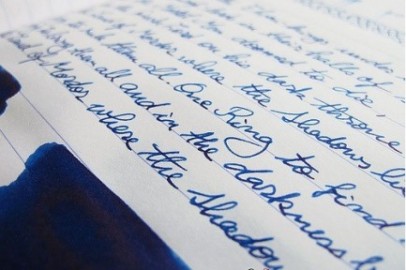 in their halls of
doomed to die,
on his dark throne
where the Shadows lie
them all One Ring to find
them all and in the darkness
of Mordor where the Shadow